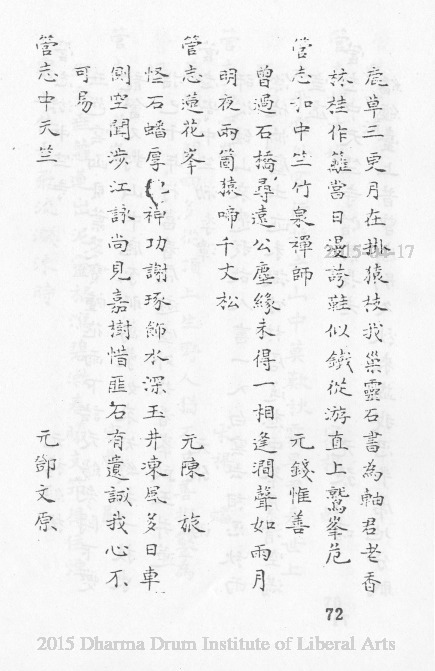 鹿草三更月在掛猿枝我巢靈石書為軸君老香
林桂作籬當日漫誇鞋似鐵從游直上鷲峯危
營志和中竺竹泉禪師 元錢惟善
曾過石橋尋遠公塵緣未得一相逢澗聲如雨月
明夜兩箇猿啼千丈松
營志蓮花峯 元陳旅
怪石蟠厚神功謝琢飾水深玉井凍風多日車
側空聞涉江詠尚見嘉樹惜匪石有遺誠我心不
可易
營志中天竺 元鄧文原
72
2015-04-17
2015 Dharma Drum Institute of Liberal Arts